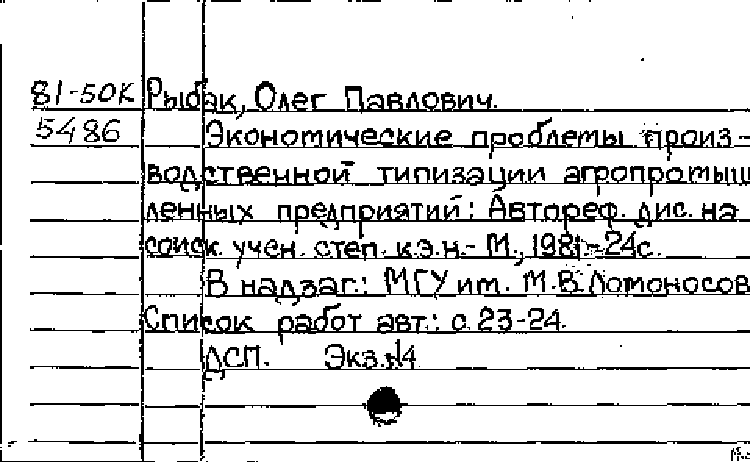 81-50К Рыбак, Олег Павлович.
5486 Экономические проблемы произ-
водственной типизации агропромыш
ленных предприятий: Автореф. дис. на
соиск. учен. степ. к.э.н.- М., 1981.-24с.
В надзаг.: МГУ им. М.В.Ломоносов
Список работ авт.: с.23-24.
ДСП. Экз.№4